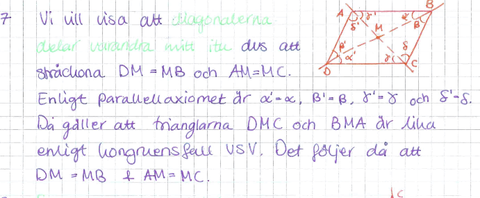 7 Vi vill visa att diagonalerna
delar varandra mitt itu dvs att
sträckorna DM = MB och AM = MC.
Enligt Parallellaxiomet är α' = α, β' = β, γ' = γ och δ' = δ.
Då gäller att trianglarna DMC och BMA är lika
enligt kongruensfall VSV. Det följer då att
DM = MB & AM = MC.
A γ' δ' α' β' B
M
β' α' γ δ
D C